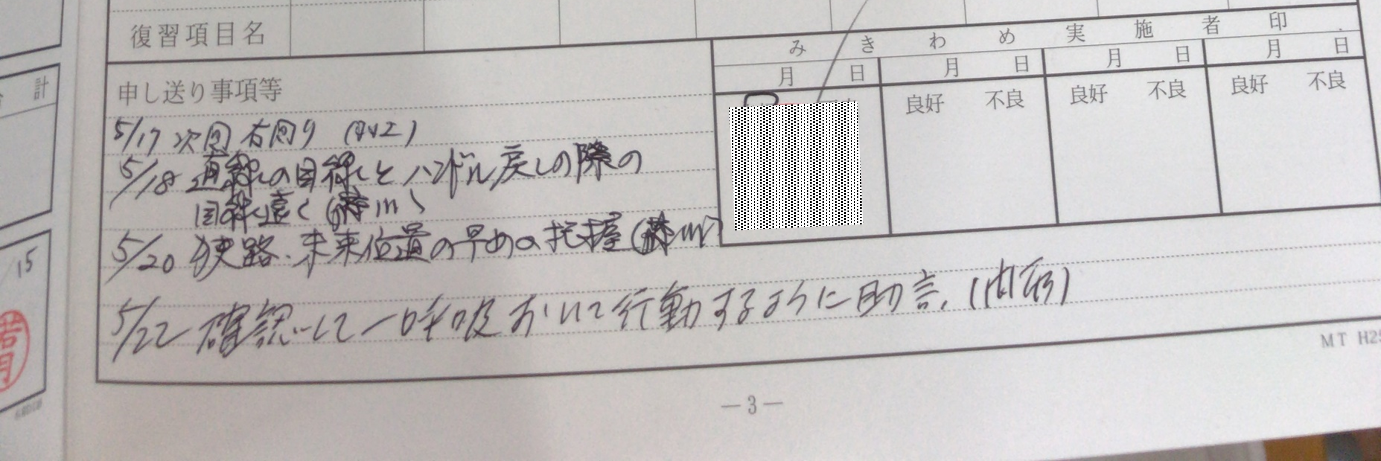 計
15
復習項目名
みきわめ実施者印
月 日 月 日 月 日 月 日
良好 不良 良好 不良 良好 不良
申し送り事項等
5/17 次回 右回り
5/18 直線の目線とハンドル戻しの際の
目線遠く
5/20 狭路、未来位置の早めの把握
5/22 確認して一呼吸おいて行動するように助言。
若月
MT H25
－3－